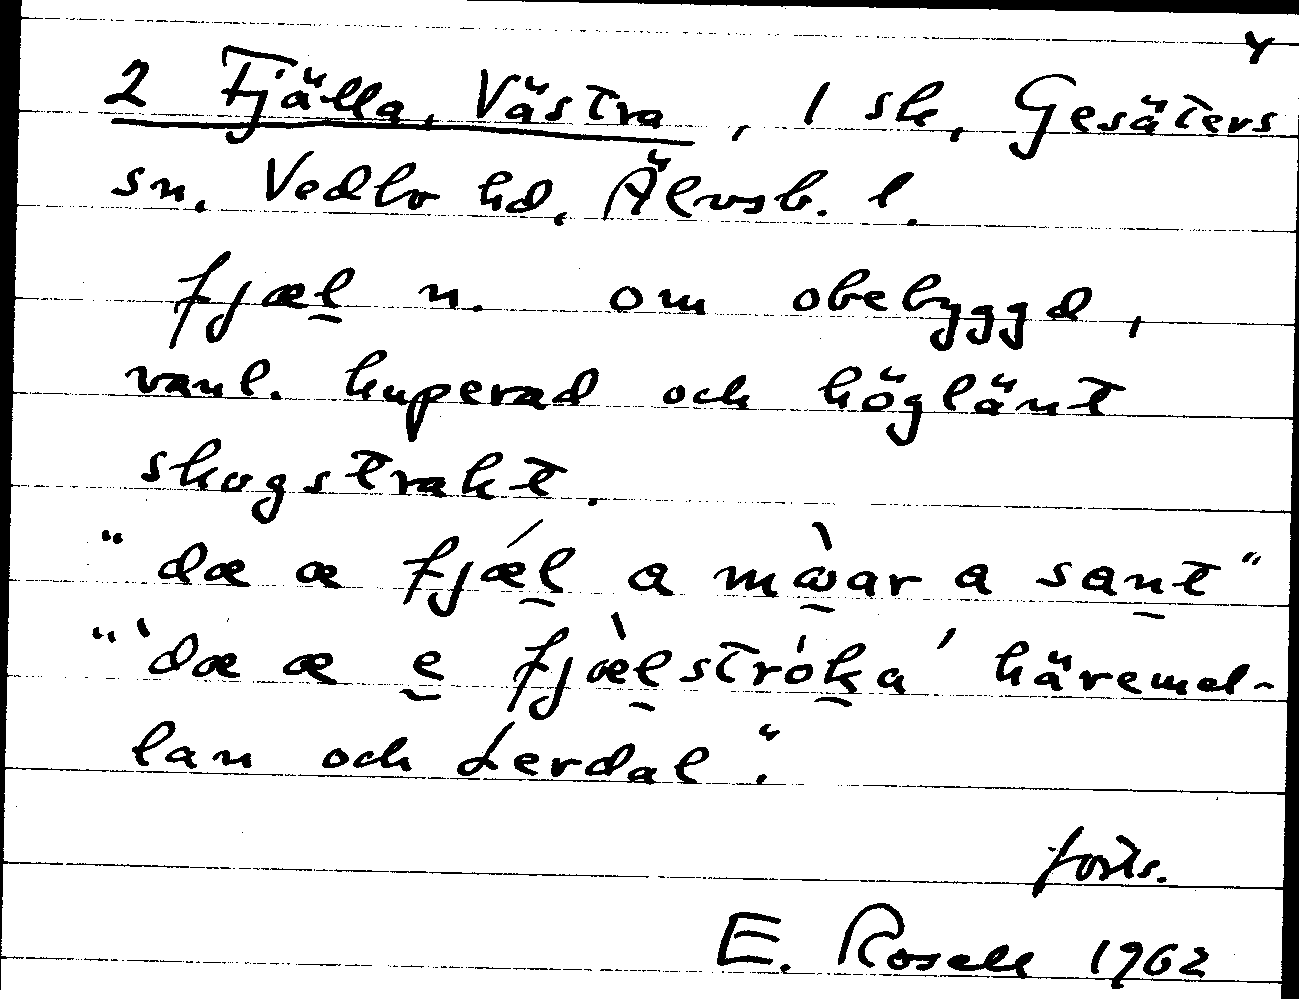 Y
2 Fjälla, Västra, 1 sk, Gesäters
sn. Vedbo hd. Älvsb. l.
fjæl̠ n. om obebyggd,
vanl. kuperad och höglänt
skogstrakt.
"dæ æ fjǽl̠ a mὼ̠ar a san̠t"
"'dæ æ e̠ fjæ̀l̠strók̠a' häremel-
lan och Lerdal".
forts.
E. Rosell 1962